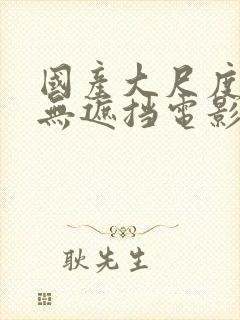 國產大尺度
無遮挡電影
耿先生